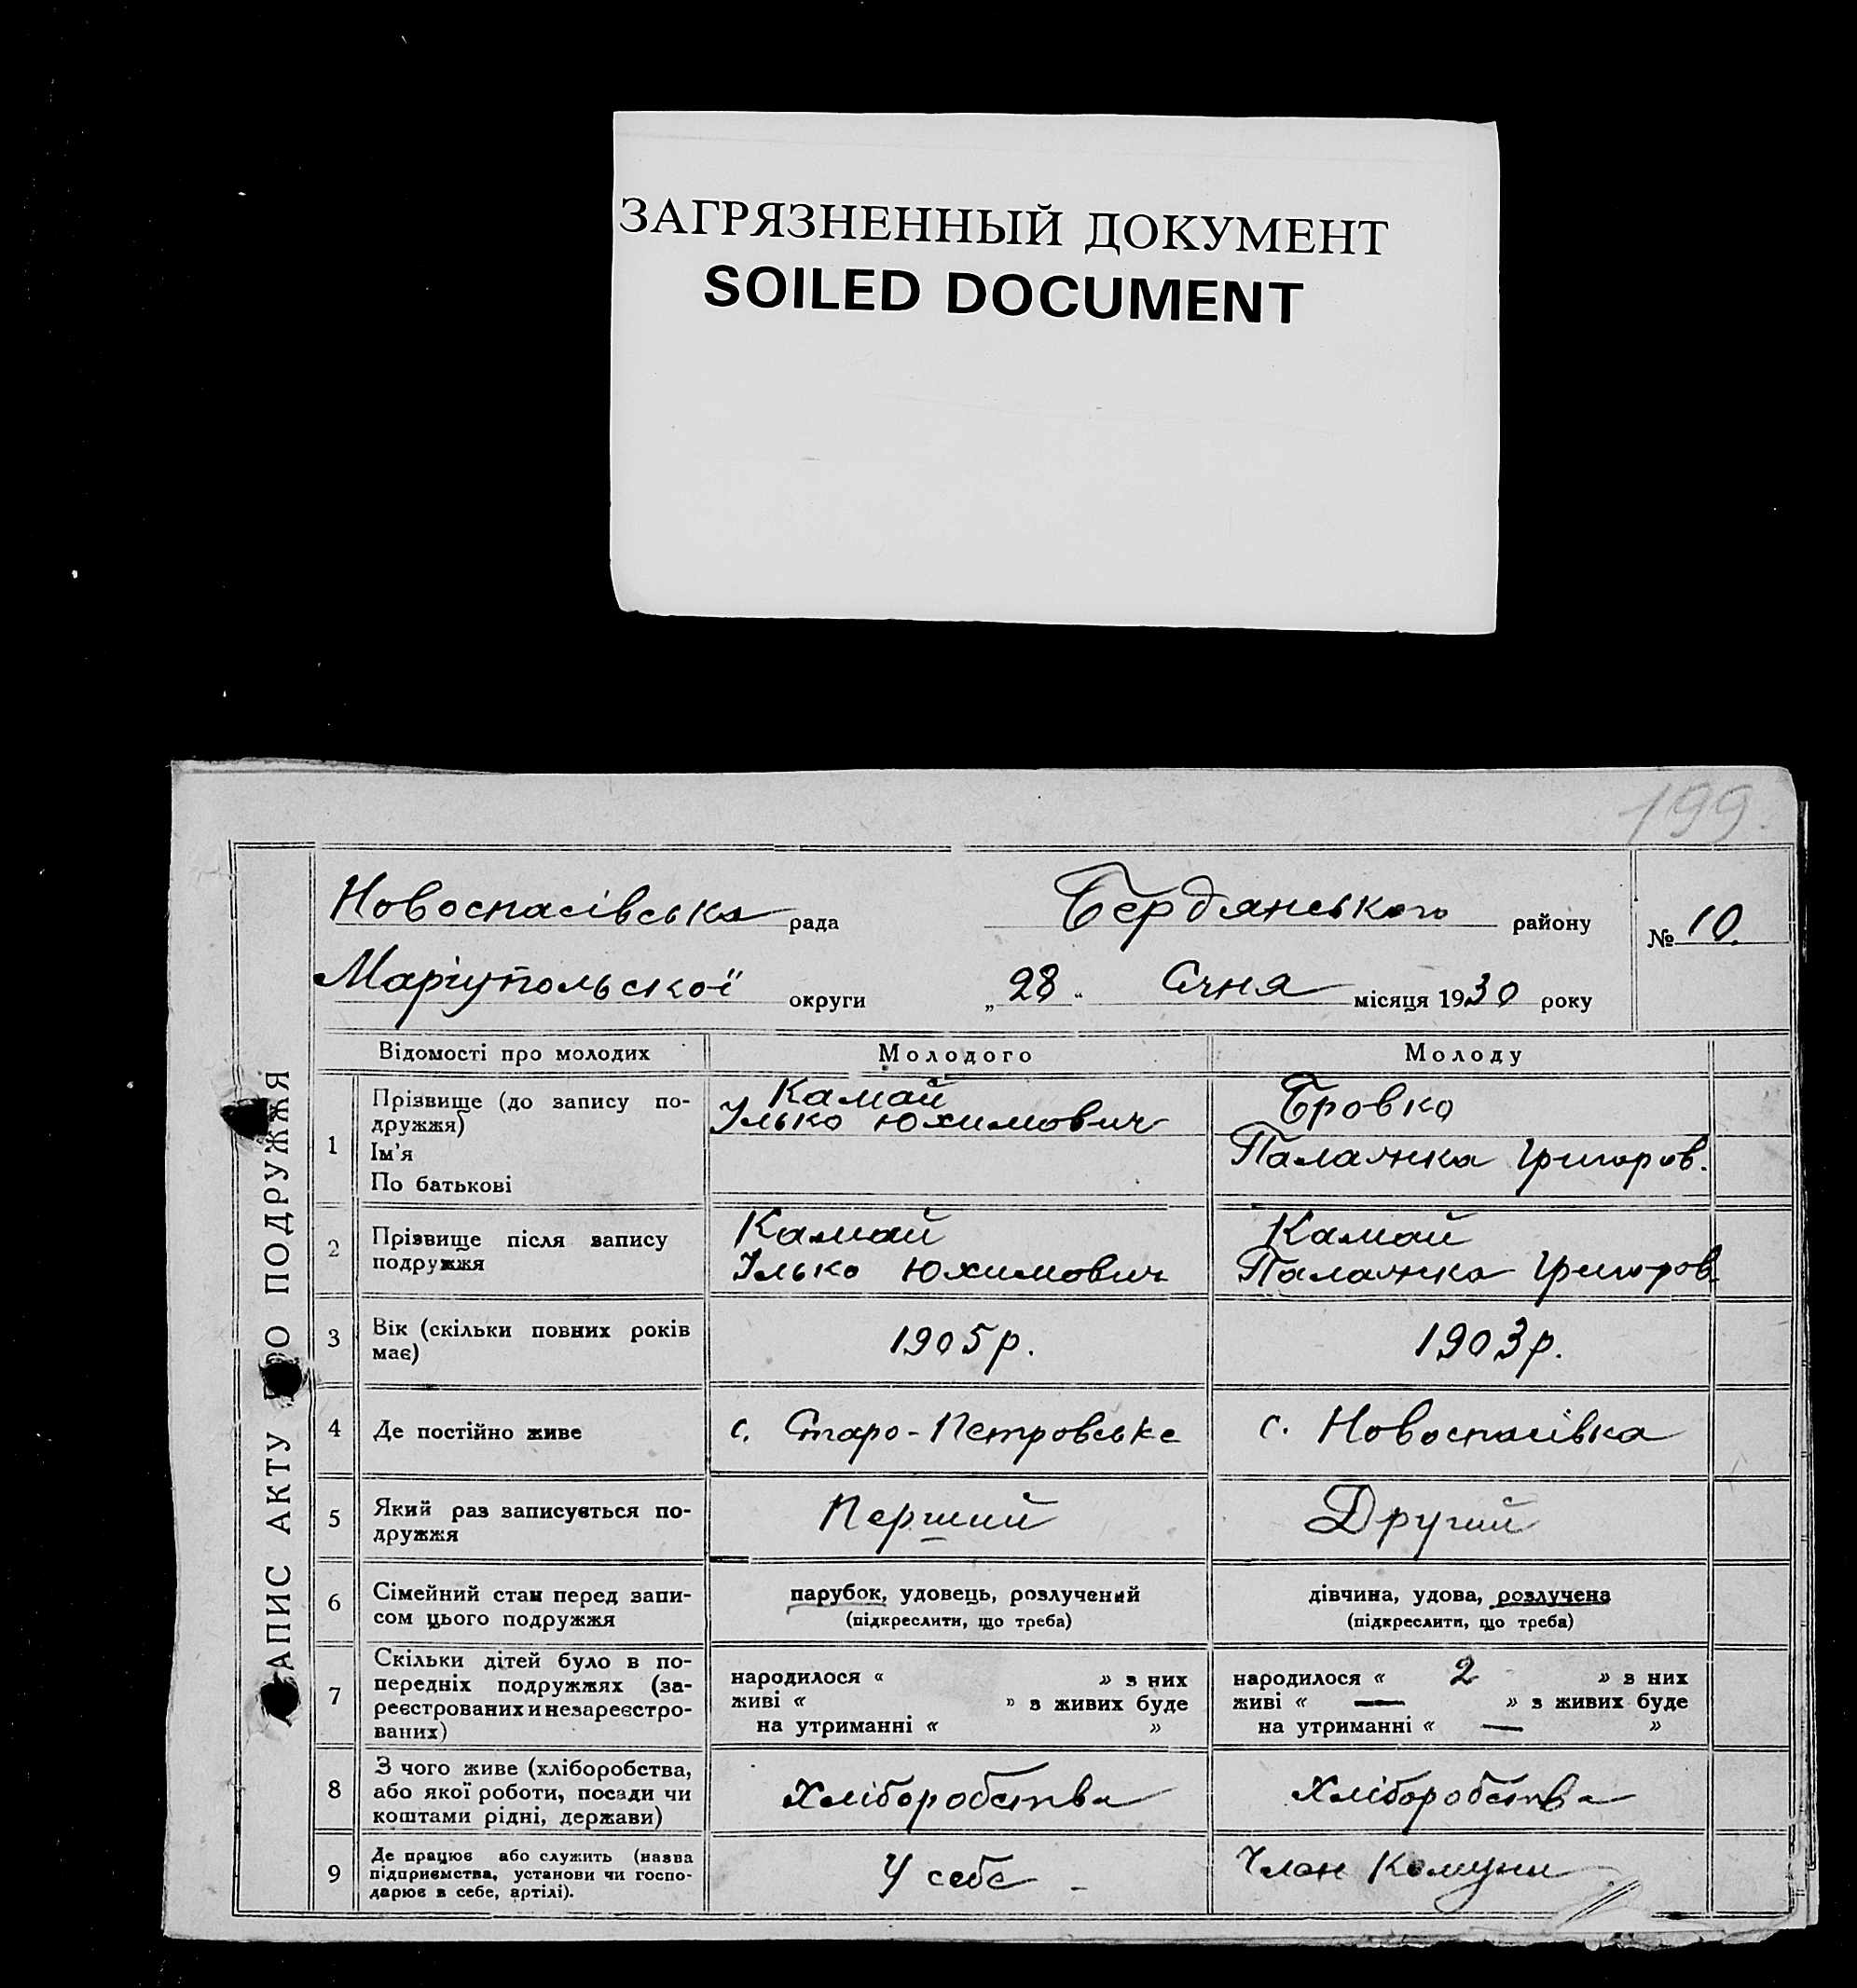 ЗАГРЯЗНЕННЫЙ ДОКУМЕНТ
SOILED DOCUMENT
199.
Новоспасівська рада Бердянського району № 10.
Маріупольскої округи „ 28 “ Січня місяця 1930 року
АПИС АКТУ ПРО ПОДРУЖЖЯ
Відомості про молодих Молодого Молоду
1 Прізвище (до запису по-
дружжя)
Ім'я
По батькові
Камай
Ілько Юхимович
Бровко
Палажка Григоров.
2 Прізвище після запису
подружжя
Камай
Ілько Юхимович
Камай
Палажка Григоров.
3 Вік (скільки повних років
має)
1905 р. 1903 р.
4 Де постійно живе с. Старо-Петровське с. Новоспасівка
5 Який раз записується по-
дружжя
Перший Другий
6 Сімейний стан перед запи-
сом цього подружжя
парубок, удовець, розлучений
(підкреслити, що треба)
дівчина, удова, розлучена
(підкреслити, що треба)
7 Скільки дітей було в по-
передніх подружжях (за-
реєстрованих и незареєстро-
ваних)
народилося « » з них
живі « » з живих буде
на утриманні « »
народилося « 2 » в них
живі « — » з живих буде
на утриманні « — »
8 З чого живе (хліборобства,
або якої роботи, посади чи
коштами рідні, держави)
Хліборобства Хліборобства
9 Де працює або служить (назва
підприємства, установи чи госпо-
дарює в себе, артілі).
У себе - Член Комуни